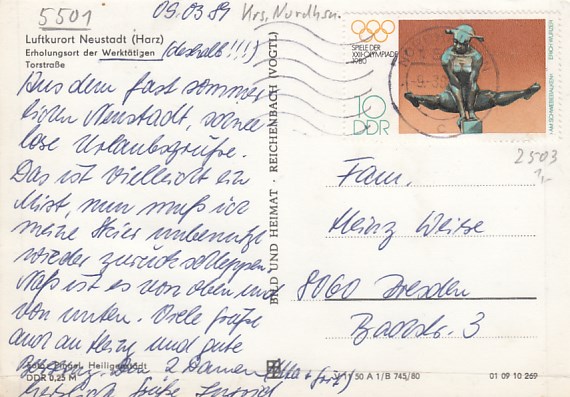 5501
09.03.81
Krs. Nordhsn.
Luftkurort Neustadt (Harz)
Erholungsort der Werktätigen (deshalb!!!!)
Torstraße
Aus dem fast sommer-
lichen Neustadt, schnee-
lose Urlaubsgrüße.
Das ist vielleicht ein
Mist, nun muß ich
meine Skier unbenutzt
wieder zurückschleppen.
Naß ist es von oben und
von unten. Viele Grüße
auch an Heinz und gute
2 Damen
Heiligenstadt
DDR 0,25 M
BILD UND HEIMAT · REICHENBACH (VOGTL)
SPIELE DER
XXII. OLYMPIADE
1980
10
DDR
AM SCHWEBEBALKEN
ERICH WURZER
2503
1,-
Fam.
Heinz Weise
8060 Dresden
Baostr. 3
A 1/B 745/80
01 09 10 269